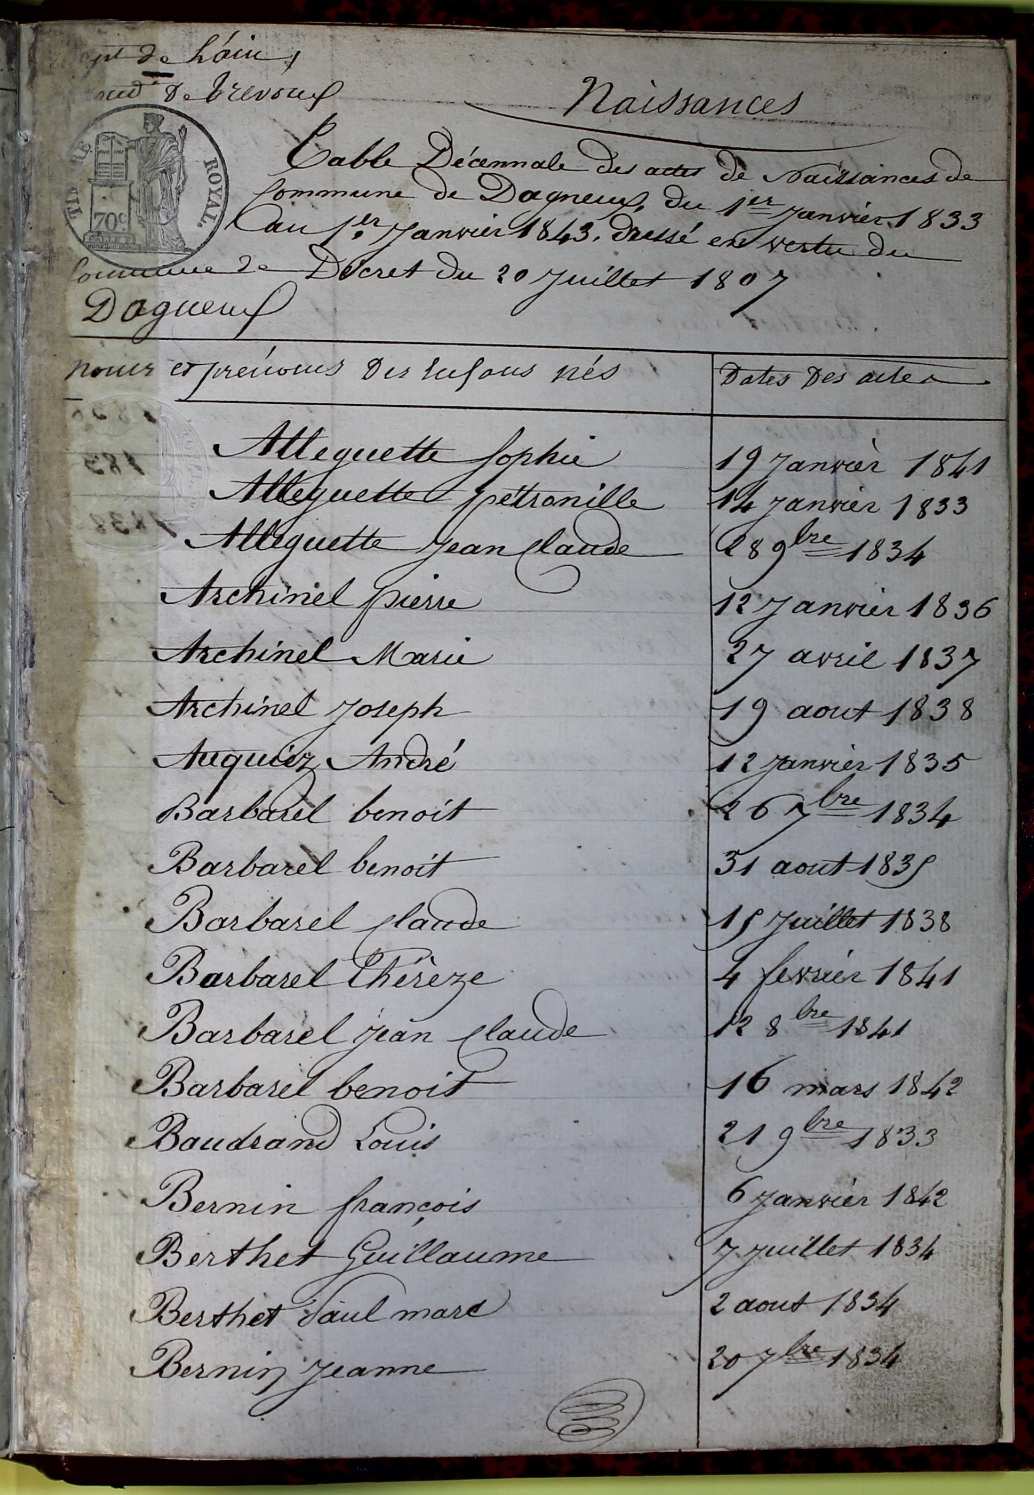 de l'ain
de trevoux
Naissances
TIMBRE ROYAL.
70c
Table Décennale des actes de Naissances de
Commune de Dagneux, du 1er Janvier 1833
au 1er Janvier 1843. dressé en vertu du
Commune de Décret du 20 Juillet 1807
Dagneux
Noms et prénoms des enfans nés Dates des actes
Alleguette Sophie 19 Janvier 1841
Alleguette petronille 14 Janvier 1833
Alleguette Jean Claude 28 9bre 1834
Archinel pierre 12 Janvier 1836
Archinel Marie 27 avril 1837
Archinel Joseph 19 aout 1838
Auquiez André 12 Janvier 1835
Barbarel benoit 26 7bre 1834
Barbarel benoit 31 aout 1835
Barbarel Claude 15 Juillet 1838
Barbarel Thérèze 4 fevrier 1841
Barbarel Jean Claude 12 8bre 1841
Barbarel benoit 16 mars 1842
Baudrand Louis 21 9bre 1833
Bernin françois 6 Janvier 1842
Berthet Guillaume 7 Juillet 1834
Berthet Paul marc 2 aout 1834
Bernin Jeanne 20 7bre 1834